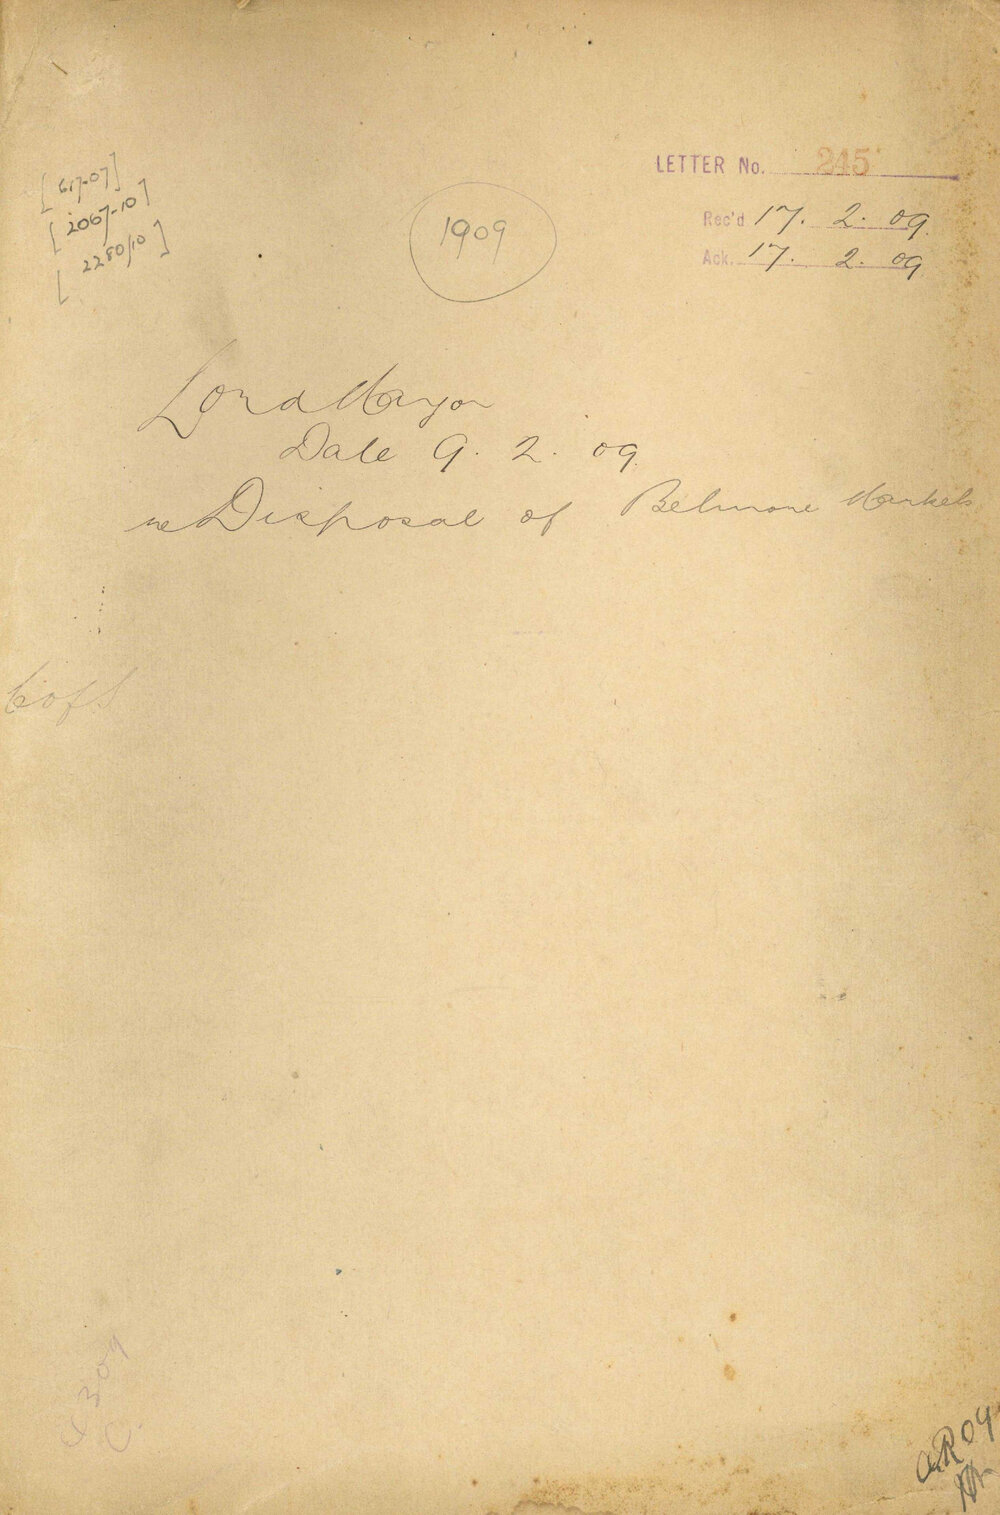 [617-07]
[2067-10]
[2280/10]
1909
LETTER No. 245
Rec'd 17. 2. 09
Ack. 17. 2. 09
Lord Mayor
Date 9. 2. 09
re Disposal of Belmore Markets
C of S